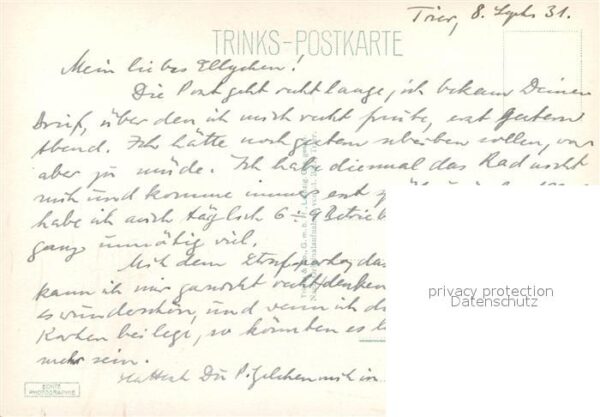 Trier, 8. Sept. 31.
TRINKS-POSTKARTE
Mein liebes Ellychen!
Die Post geht recht lange, ich bekam Deinen
Brief, über den ich mich recht freute, erst gestern
Abend. Ich hätte noch gestern schreiben wollen, war
aber zu müde. Ich habe diesmal das Rad nicht
mit und komme immer erst
habe ich auch täglich 6-9 Betrie
ganz unnötig viel.
Mit dem
kann ich mir garnicht recht denken
es wunderschön, und wenn ich d
Karten beilege, so könnten es
mehr sein.
Hattest Du
privacy protection
Datenschutz
ECHTE
PHOTOGRAPHIE